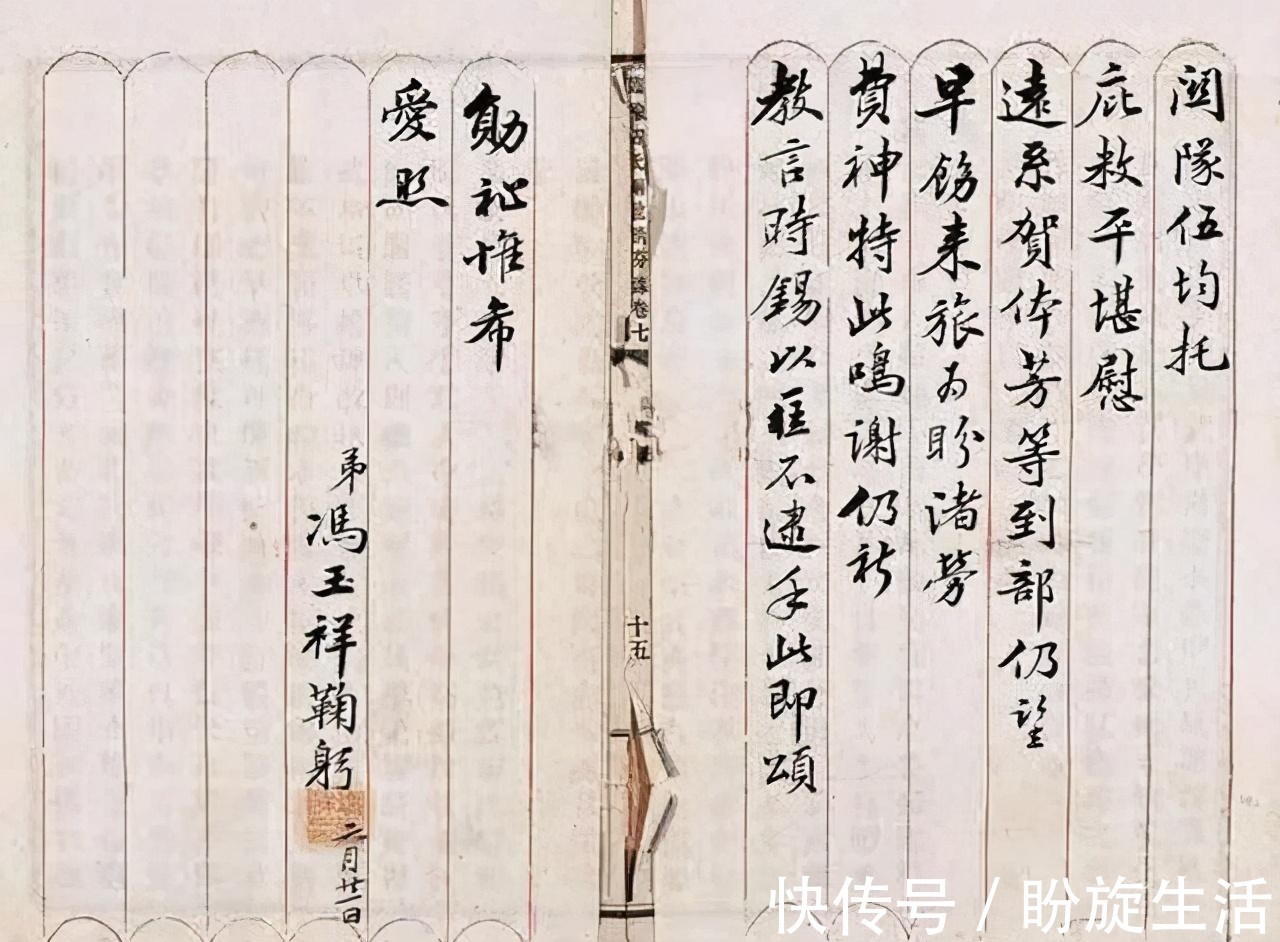 關隊伍均托
庇救平堪慰
遠系賀體芳等到部仍望
早飭來旅為盼諸勞
費神特此鳴謝仍祈
教言時錫以匡不逮手此即頌
勛祉惟希
愛照
弟馮玉祥鞠躬
二月廿一日
卷七
十五
快传号 / 盼旋生活